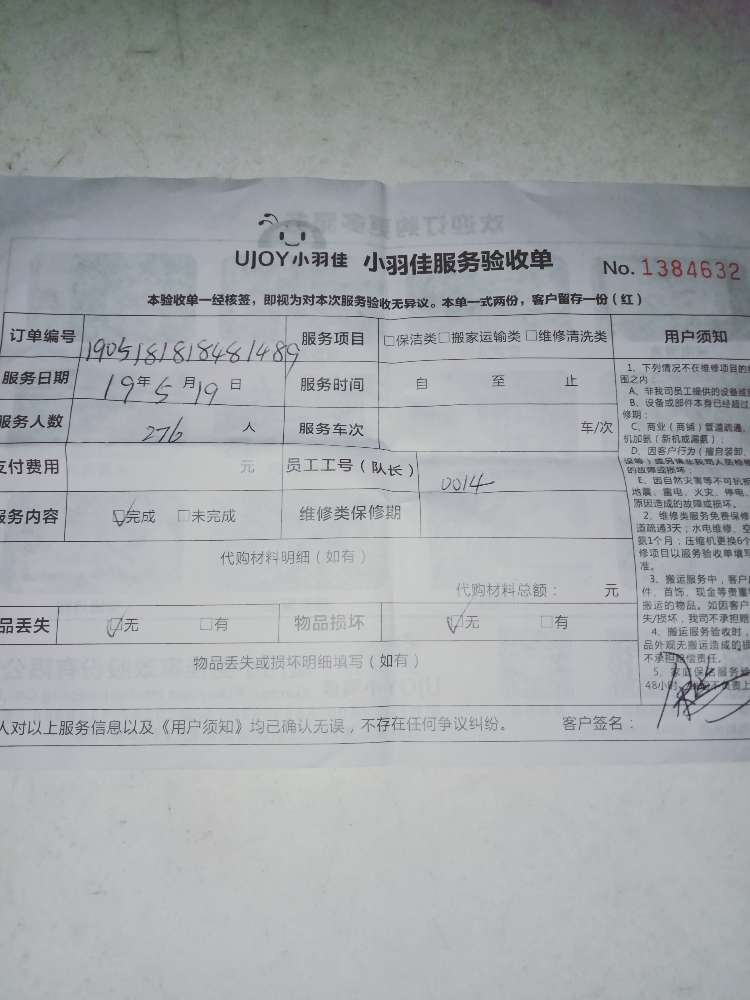 UJOY小羽佳 小羽佳服务验收单 No. 1384632
本验收单一经核签，即视为对本次服务验收无异议。本单一式两份，客户留存一份（红）
订单编号 1905181818481489 服务项目 □保洁类□搬家运输类□维修清洗类 用户须知
服务日期 19年5月19日 服务时间 自 至 止
服务人数 276 人 服务车次 车/次
支付费用 元 员工工号（队长） 0014
服务内容 ☑完成 □未完成 维修类保修期
代购材料明细（如有）
代购材料总额： 元
品丢失 ☑无 □有 物品损坏 ☑无 □有
物品丢失或损坏明细填写（如有）
人对以上服务信息以及《用户须知》均已确认无误，不存在任何争议纠纷。 客户签名：
1、下列情况不在维修项目的
围之内：
A、非我司员工提供的设备或
B、设备或部件本身已经超过
修期；
C、商业（商铺）管道疏通、
机加氨（新机或漏氨）；
D、因客户行为（雇房装卸、
的故障或损坏
E、因自然灾害等不可抗
地震、雷电、火灾、停电、
原因造成的故障或损坏。
2、维修类服务免费保修
道疏通3天；水电维修、空
氨1个月；压缩机更换6个
修项目以服务验收单填写
准。
3、搬运服务中，客户
件、首饰、现金等贵重
搬运的物品。如因客户
失/损坏，我司不承担赔
4、搬运服务验收时，
品外观无搬运造成的损
不承担赔偿责任。
5、家庭保洁服务
48小时